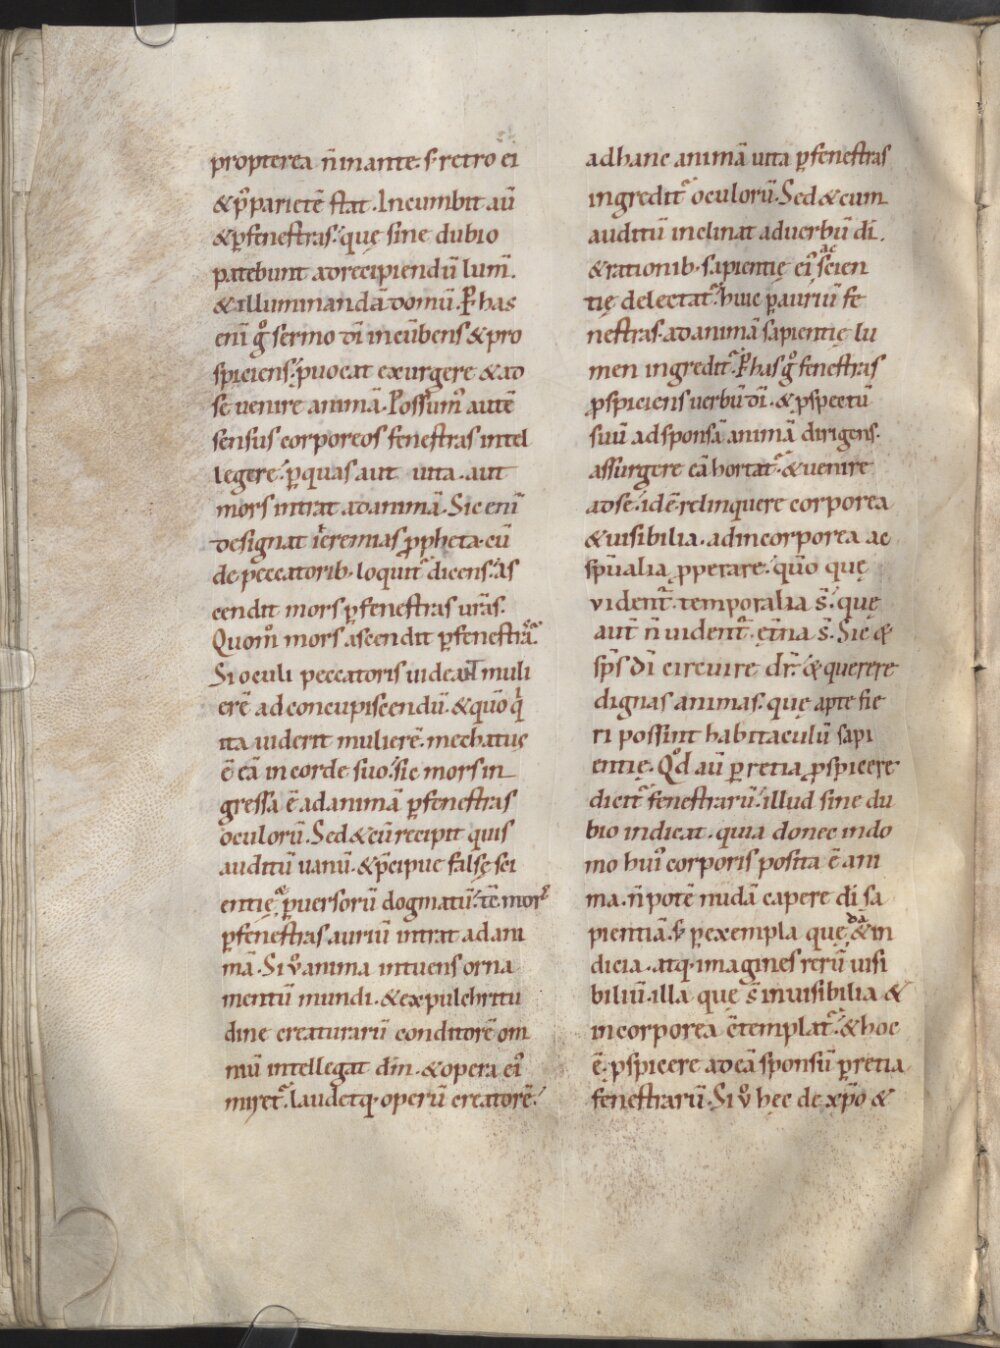 propterea n̄ inante. s; retro ei
& p̄ parietē stat. Incumbit aū
& ꝑ fenestras. quę sine dubio
patebunt ad recipiendū lum̄.
& illuminandā domū. Ꝑ has
eni̅ gͦ sermo dī incūbens & pro
spiciens. puocat exurgere & ad
se uenire animā. Possumꝰ autē
sensus corporeos fenestras intel
legere. ꝑ quas aut uita. aut
mors intrat ad animā. Sic eni̅
designat ieremias ꝓpheta. cū
de peccatorib. loquit᷑ dicens. as
cendit mors ꝑ fenestras ur̄as.
Quom̊ mors ascendit ꝑ fenestrā.
Si oculi peccatoris uideaNT muli
erē ad concupiscendū. & quō q̇
ita uiderit mulierē. mechatus
ē eā in corde suo. sic mors in
gressa ē ad animā ꝑ fenestras
oculorū. Sed & cū recipit quis
auditū uanū. & p̄cipue falsę sci
entię ꝑuersorū dogmatū. tc̄ mors
ꝑ fenestras auriū intrat ad ani
mā. Si ů anima intuens orna
mentū mundi. & ex pulchritu
dine creaturarū conditorē om
niū intellegat dm̄. & opera eiꝰ
miret᷑. laudetq. operū creatorē.
ad hanc animā uita ꝑ fenestras
ingredit᷑ oculorū. Sed & cum
auditū inclinat ad uerbū dī.
& rationib. sapientię eiꝰ ac scien
tię delectat᷑. huic ꝑ auriū fe
nestras. ad animā sapientię lu
men ingredit᷑. Ꝑ has gͦ fenestras
ꝓspiciens uerbū dī. & ꝓspectū
suū ad sponsā animā dirigens.
assurgere eā hortat᷑. & uenire
ad se. id ē. relinquere corporea
& uisibilia. ad incorporea ac
sp̄ualia ꝓperare. quō quę
vident᷑. temporalia s̄. quę
aut̄ n̄ uident᷑. et̄na s̄. Sic &
sp̄s dī circuire dr̄. & querere
dignas animas. quę apte fie
ri possint habitaculū sapi
entię. Qͦd aū ꝑ retia ꝓspicere
dicit᷑ fenestrarū. illud sine du
bio indicat. quia donec in do
mo huiꝰ corporis posita ē ani
ma. n̄ potē nudā capere dī sa
pientiā. s; ꝑ exempla quędā & in
dicia. atq. imagines rerū uisi
biliū. illa quę s̄ inuisibilia &
incorporea c̄templat᷑. & hoc
ē. ꝓspicere ad eā sponsū ꝑ retia
fenestrarū. Si ů hec de xp̄o &